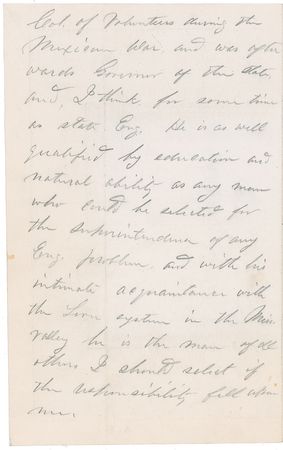 Col. of Volunteers during the
Mexican War, and was after
wards Governor of the state,
and, I think for some time
as state Eng. He is as well
qualified by education and
natural ability as any man
who could be selected for
the superintendence of any
Eng. problem, and with his
intimate acquaintance with
the Levee system in the Miss.
Valley he is the man of all
others I should select if
the responsibility fell upon
me.